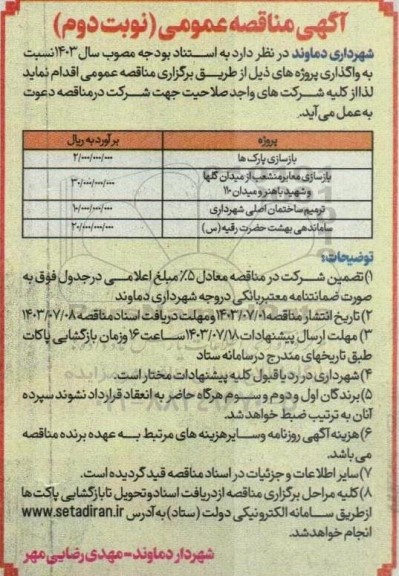 آگهی مناقصه عمومی (نوبت دوم)
شهرداری دماوند در نظر دارد به استناد بودجه مصوب سال ۱۴۰۳ نسبت
به واگذاری پروژه های ذیل از طریق برگزاری مناقصه عمومی اقدام نماید
لذا از کلیه شرکت های واجد صلاحیت جهت شرکت در مناقصه دعوت
به عمل می آید.
پروژه برآورد به ریال
بازسازی پارک ها ۲/۰۰۰/۰۰۰/۰۰۰
بازسازی معابر منشعب از میدان گلها
و شهید باهنر و میدان ۱۱۰ ۳۰/۰۰۰/۰۰۰/۰۰۰
ترمیم ساختمان اصلی شهرداری ۱۰/۰۰۰/۰۰۰/۰۰۰
ساماندهی بهشت حضرت رقیه (س) ۲۰/۰۰۰/۰۰۰/۰۰۰
توضیحات:
۱) تضمین شرکت در مناقصه معادل ۵٪ مبلغ اعلامی در جدول فوق به
صورت ضمانتنامه معتبر بانکی در وجه شهرداری دماوند
۲) تاریخ انتشار مناقصه ۱۴۰۳/۰۷/۰۱ و مهلت دریافت اسناد مناقصه ۱۴۰۳/۰۷/۰۸
۳) مهلت ارسال پیشنهادات ۱۴۰۳/۰۷/۱۸ ساعت ۱۶ وزمان بازگشایی پاکات
طبق تاریخهای مندرج در سامانه ستاد
۴) شهرداری در رد یا قبول کلیه پیشنهادات مختار است.
۵) برندگان اول و دوم و سوم هرگاه حاضر به انعقاد قرارداد نشوند سپرده
آنان به ترتیب ضبط خواهد شد.
۶) هزینه آگهی روزنامه وسایر هزینه های مرتبط به عهده برنده مناقصه
می باشد.
۷) سایر اطلاعات و جزئیات در اسناد مناقصه قید گردیده است.
۸) کلیه مراحل برگزاری مناقصه از دریافت اسناد و تحویل تا بازگشایی پاکت ها
از طریق سامانه الکترونیکی دولت (ستاد) به آدرس www.setadiran.ir
انجام خواهد شد.
شهردار دماوند - مهدی رضایی مهر